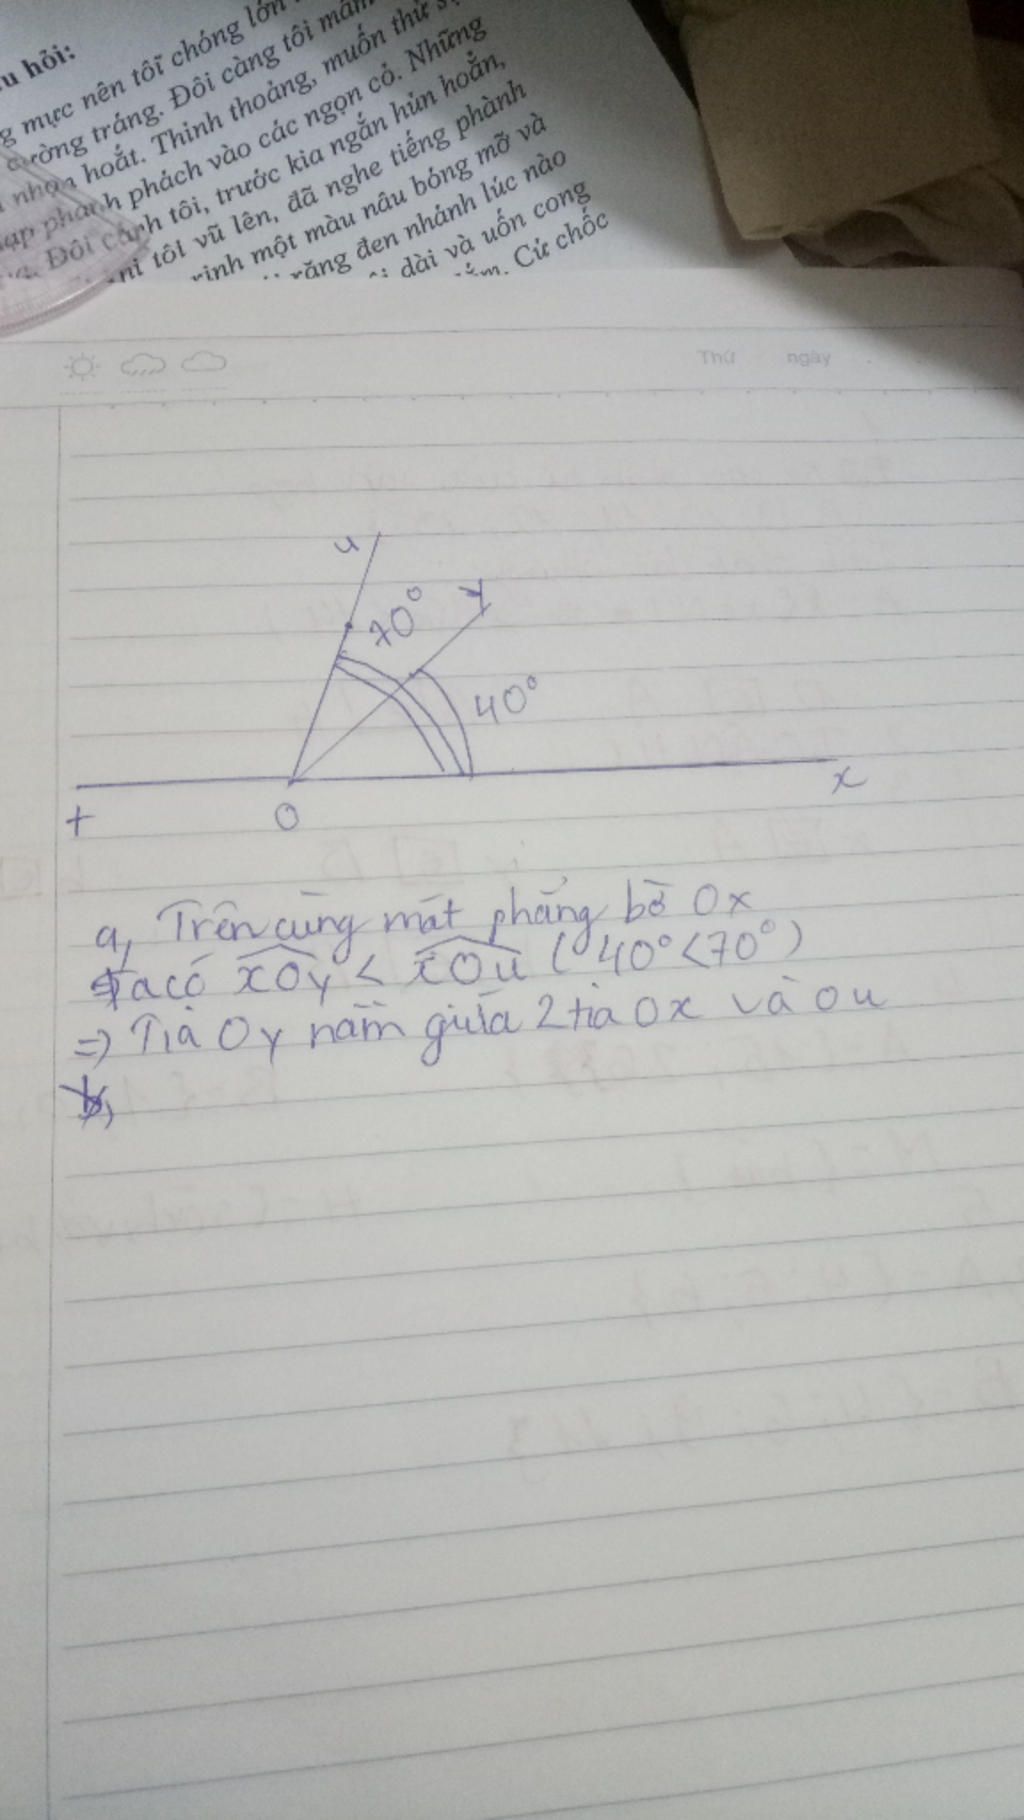 hỏi:
mực nên tôi chóng lớn
cường tráng. Đôi càng tôi mẫm
nhọn hoắt. Thỉnh thoảng, muốn thử
phanh phách vào các ngọn cỏ. Những
Đôi cánh tôi, trước kia ngắn hủn hoẳn,
tôi vũ lên, đã nghe tiếng phành
rinh một màu nâu bóng mỡ và
răng đen nhánh lúc nào
dài và uốn cong
Cứ chốc
Thứ ngày
u
70°
y
40°
x
t
O
a, Trên cùng mát phẳng bờ Ox
Ta có xOy < xOu (40° < 70°)
=> Tia Oy nằm giữa 2 tia Ox và Ou
b,